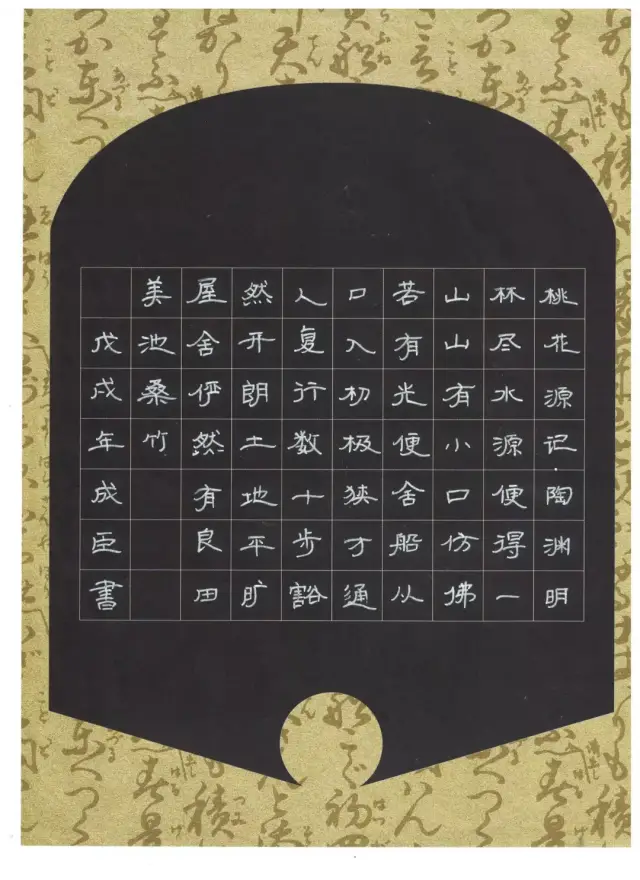 桃花源记·陶渊明
林尽水源便得一
山山有小口仿佛
若有光便舍船从
口入初极狭才通
人复行数十步豁
然开朗土地平旷
屋舍俨然有良田
美池桑竹
戊戌年成臣書